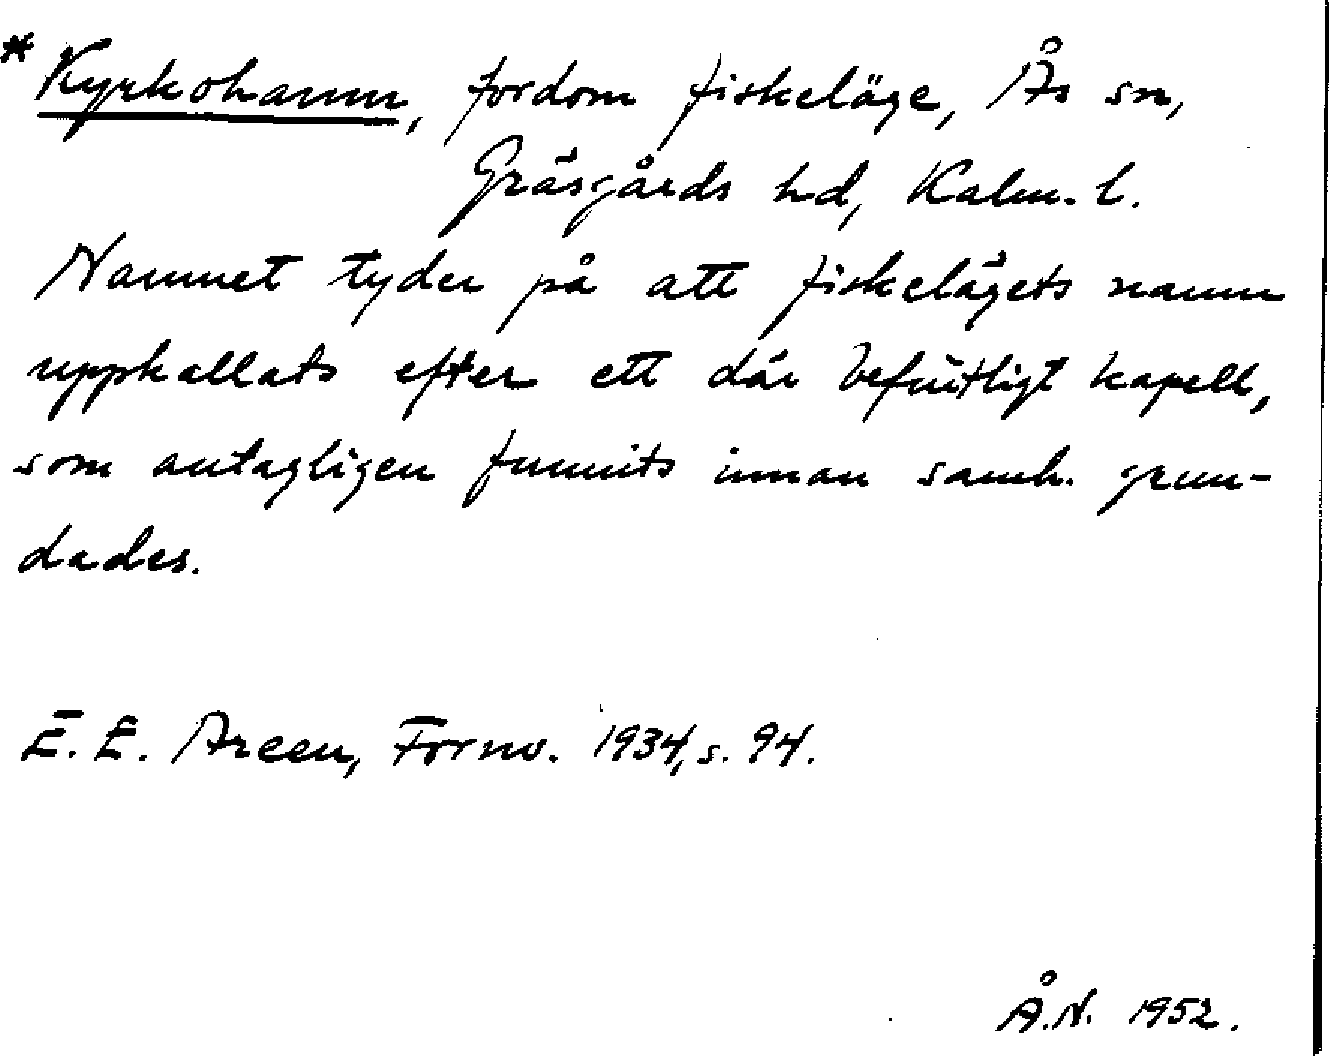 * Kyrkohamn, fordom fiskeläge, Ås sn,
Gräsgårds hd, Kalm. l.
Namnet tyder på att fiskelägets namn
uppkallats efter ett där befintligt kapell,
som antagligen funnits innan samh. grun-
dades.
E. E. Areen, Fornv. 1934, s. 94.
Å.N. 1952.